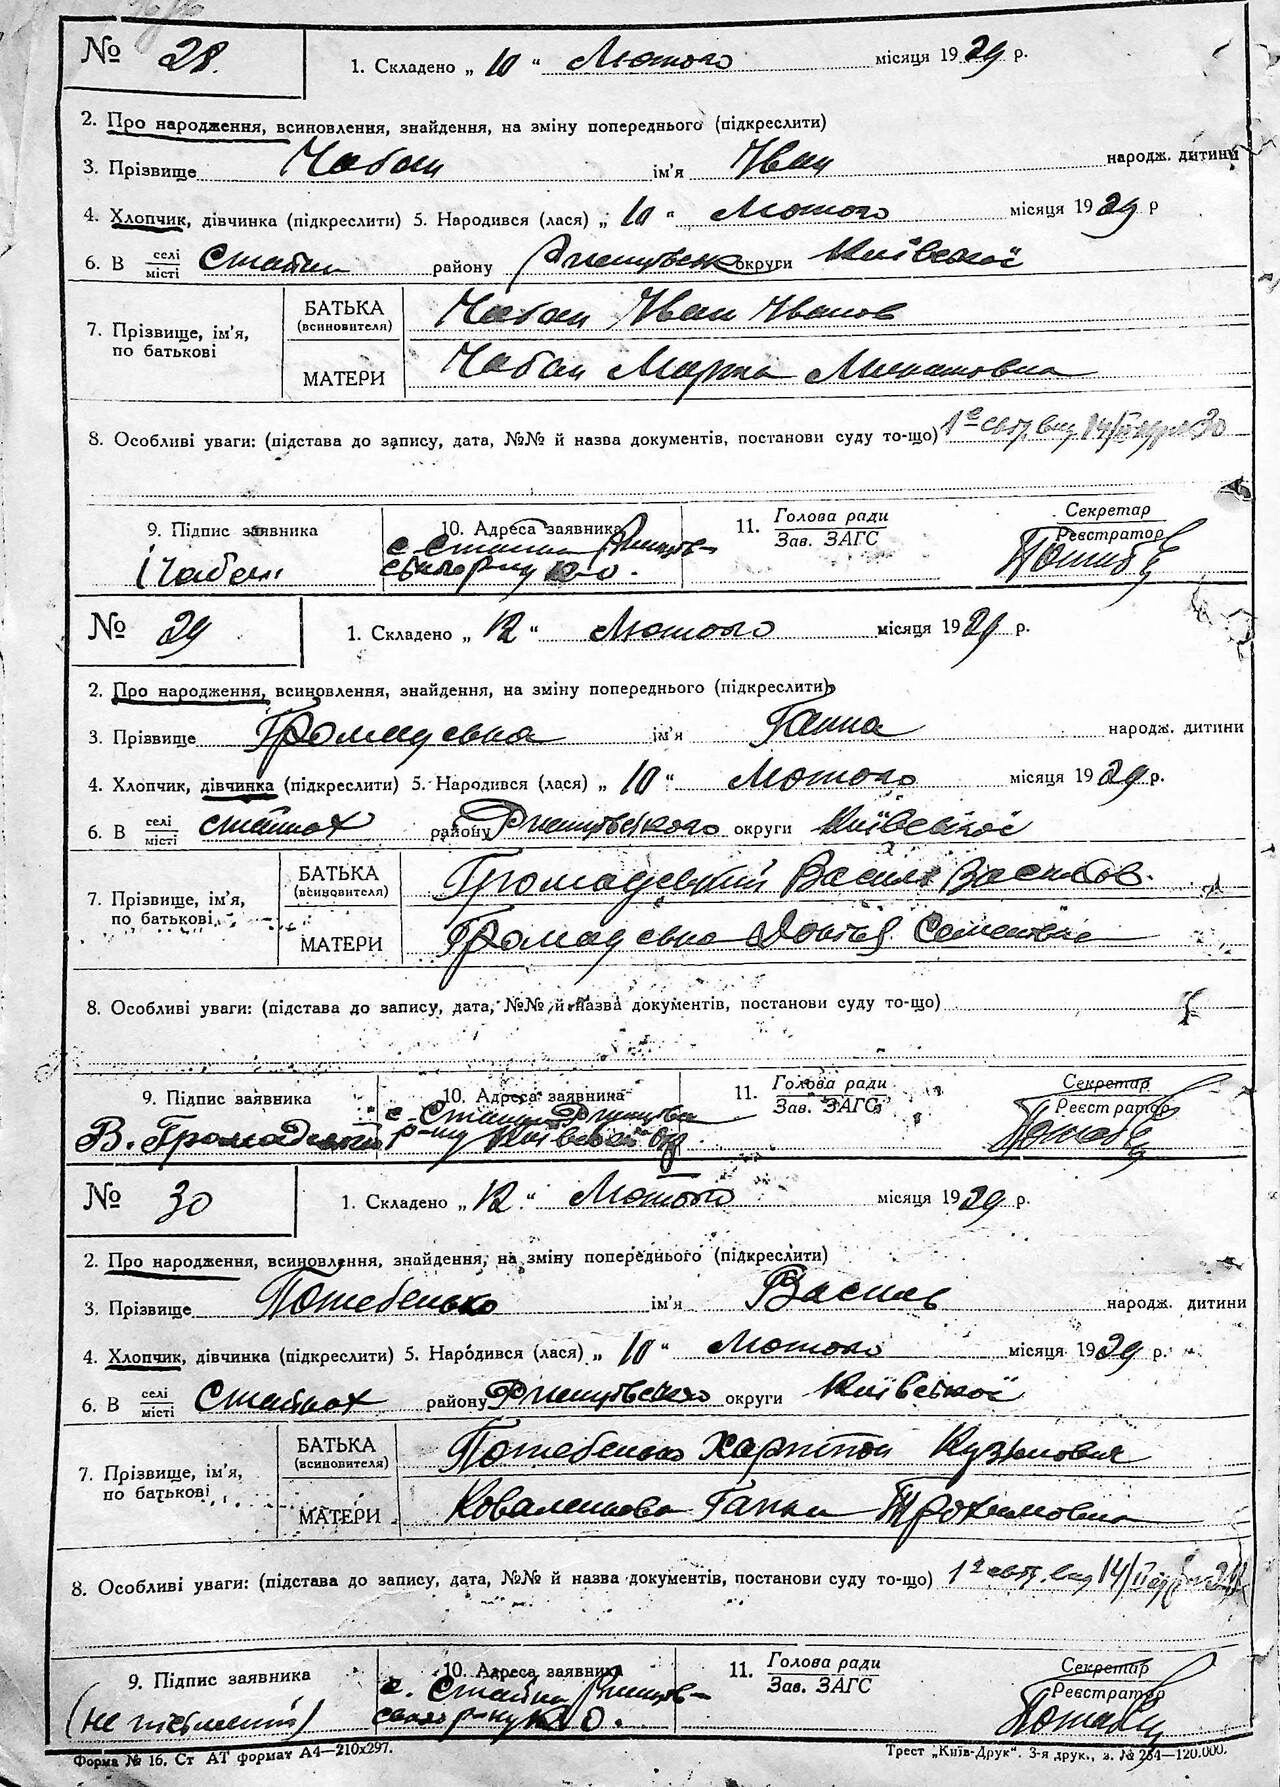 № 28. 1. Складено „ 10 “ Лютого місяця 1929 р.
2. Про народження, всиновлення, знайдення, на зміну попереднього (підкреслити)
3. Прізвище Чабан ім'я Іван народж. дитини
4. Хлопчик, дівчинка (підкреслити) 5. Народився (лася) „ 10 “ Лютого місяця 1929 р
6. В селі/місті Стайки району округи Київської
7. Прізвище, ім'я, по батькові БАТЬКА (всиновителя) Чабан Іван Іванов
МАТЕРИ Чабан Марта
8. Особливі уваги: (підстава до запису, дата, №№ й назва документів, постанови суду то-що)
9. Підпис заявника 10. Адреса заявника 11. Голова ради Секретар
Зав. ЗАГС Реєстратор
Чабан с. Стайки
№ 29 1. Складено „ 12 “ Лютого місяця 1929 р.
2. Про народження, всиновлення, знайдення, на зміну попереднього (підкреслити)
3. Прізвище Громадська ім'я Ганна народж. дитини
4. Хлопчик, дівчинка (підкреслити) 5. Народився (лася) „ 10 “ Лютого місяця 1929 р.
6. В селі/місті Стайках району Ржищівського округи Київської
7. Прізвище, ім'я, по батькові БАТЬКА (всиновителя) Громадський Василь Васильов.
МАТЕРИ Громадська Семенівна
8. Особливі уваги: (підстава до запису, дата, №№ й назва документів, постанови суду то-що)
9. Підпис заявника 10. Адреса заявника 11. Голова ради Секретар
Зав. ЗАГС Реєстратор
В. Громадський с. Стайки
р-ну
№ 30 1. Складено „ 12 “ Лютого місяця 1929 р.
2. Про народження, всиновлення, знайдення, на зміну попереднього (підкреслити)
3. Прізвище Потебенько ім'я Василь народж. дитини
4. Хлопчик, дівчинка (підкреслити) 5. Народився (лася) „ 10 “ Лютого місяця 1929 р.
6. В селі/місті Стайках району Ржищівського округи Київської
7. Прізвище, ім'я, по батькові БАТЬКА (всиновителя) Потебенько Харитон Кузьмович
МАТЕРИ Коваленкова Ганна Трохимовна
8. Особливі уваги: (підстава до запису, дата, №№ й назва документів, постанови суду то-що)
9. Підпис заявника 10. Адреса заявника 11. Голова ради Секретар
Зав. ЗАГС Реєстратор
(не письменний) с. Стайки
Форма № 16. Ст АТ формат А4—210х297. Трест „Київ-Друк“. 3-я друк., з. № 254—120.000.